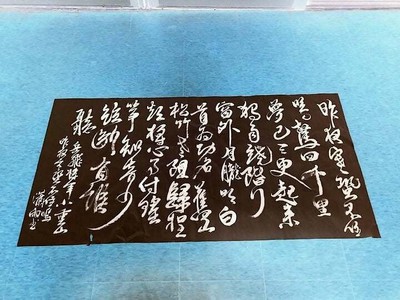 昨夜寒蛩不住
鳴驚回千里
夢已三更起來
獨自繞階行
窗外月朧明白
首為功名舊山
松竹老阻歸程
欲將心事付瑤
箏知音少
絃斷有誰
聽
岳飛 小重山
昨夜寒蛩不住鳴
雨書